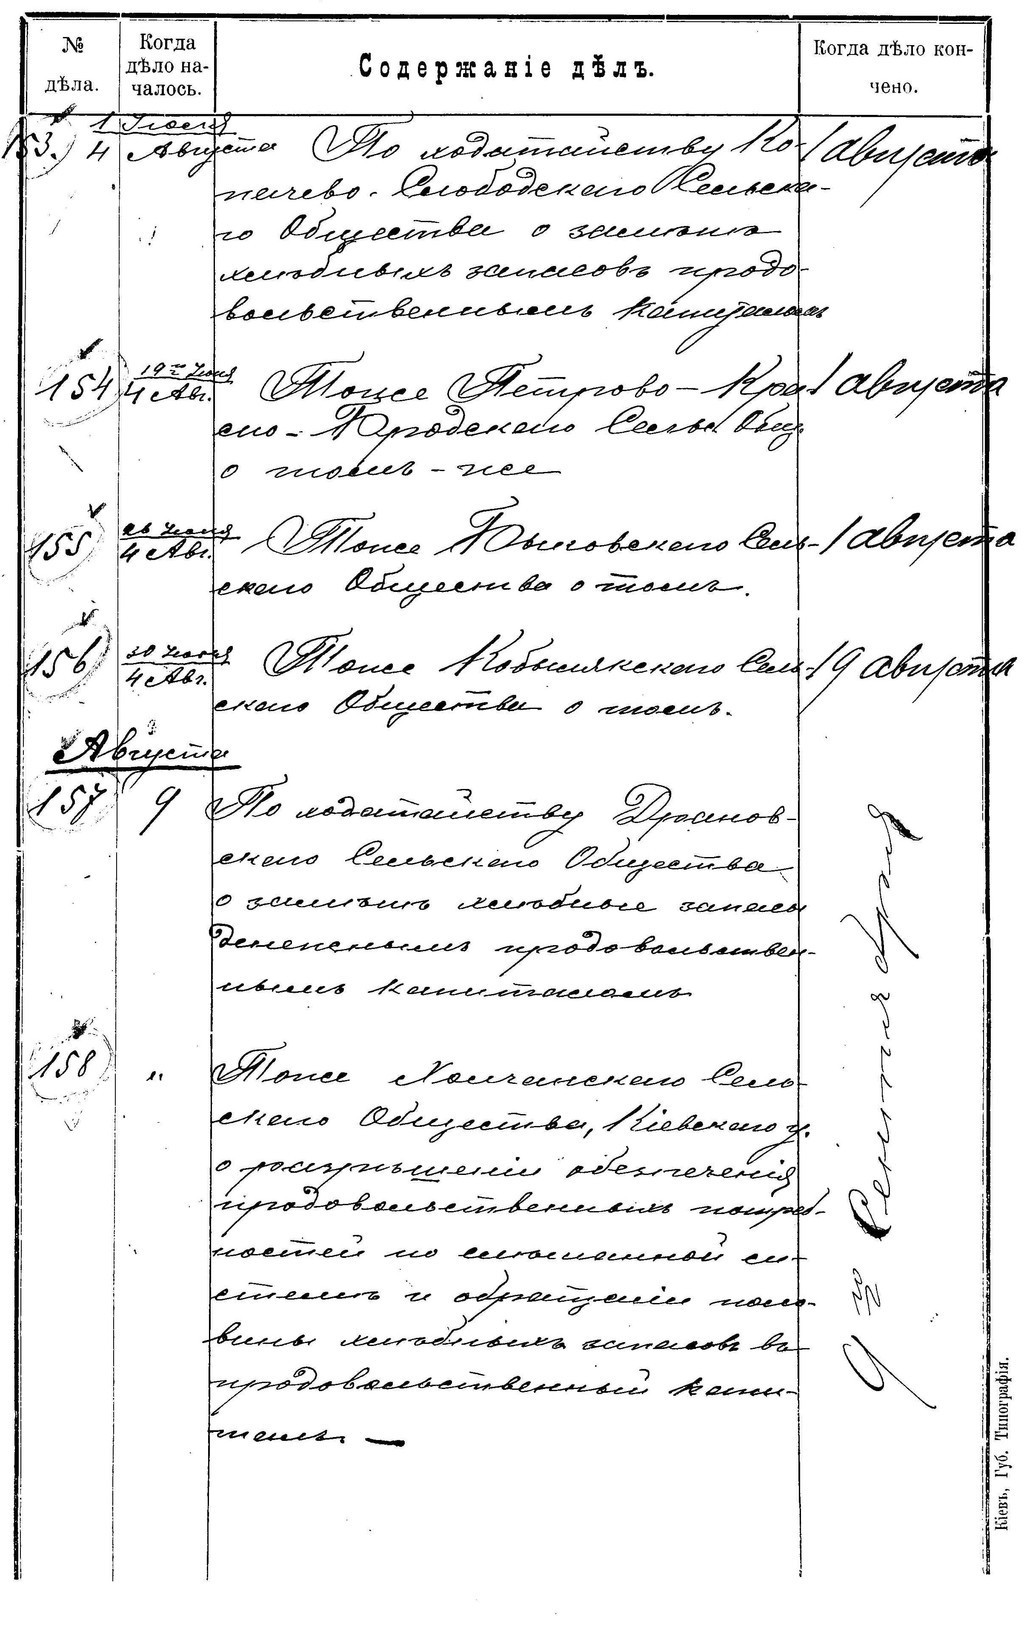 № дѣла.
Когда дѣло началось.
Содержаніе дѣлъ.
Когда дѣло кончено.
153.) 1 Іюля
4 Августа По ходатайству Ко- 1 августа
пачево-Слободскаго Сельска-
го Общества о замѣнѣ
хлѣбныхъ запасовъ продо-
вольственнымъ капиталомъ
154 19го Іюля
4 Авг. Тоже Петрово- 1 августа
Сельск. Общ.
о томъ-же
155 26 Іюля
4 Авг. Тоже Быковскаго Сель- 1 августа
скаго Общества о томъ.
156 30 Іюля
4 Авг. Тоже Кобылякскаго Сель- 9 августа
скаго Общества о томъ.
Августа
157 9 По ходатайству
скаго Сельскаго Общества
о замѣнѣ хлѣбные запасы
денежнымъ продовольствен-
нымъ капиталомъ
158 " Тоже Хомчанскаго Сель-
скаго Общества, Кіевскаго у.
о разрѣшеніи обезпеченія
продовольственныхъ потреб-
ностей по смѣшанной си-
стемѣ и обращеніи поло-
вины хлѣбныхъ запасовъ въ
продовольственный капи-
талъ. —
9го Сентября
Кіевъ, Губ. Типографія.